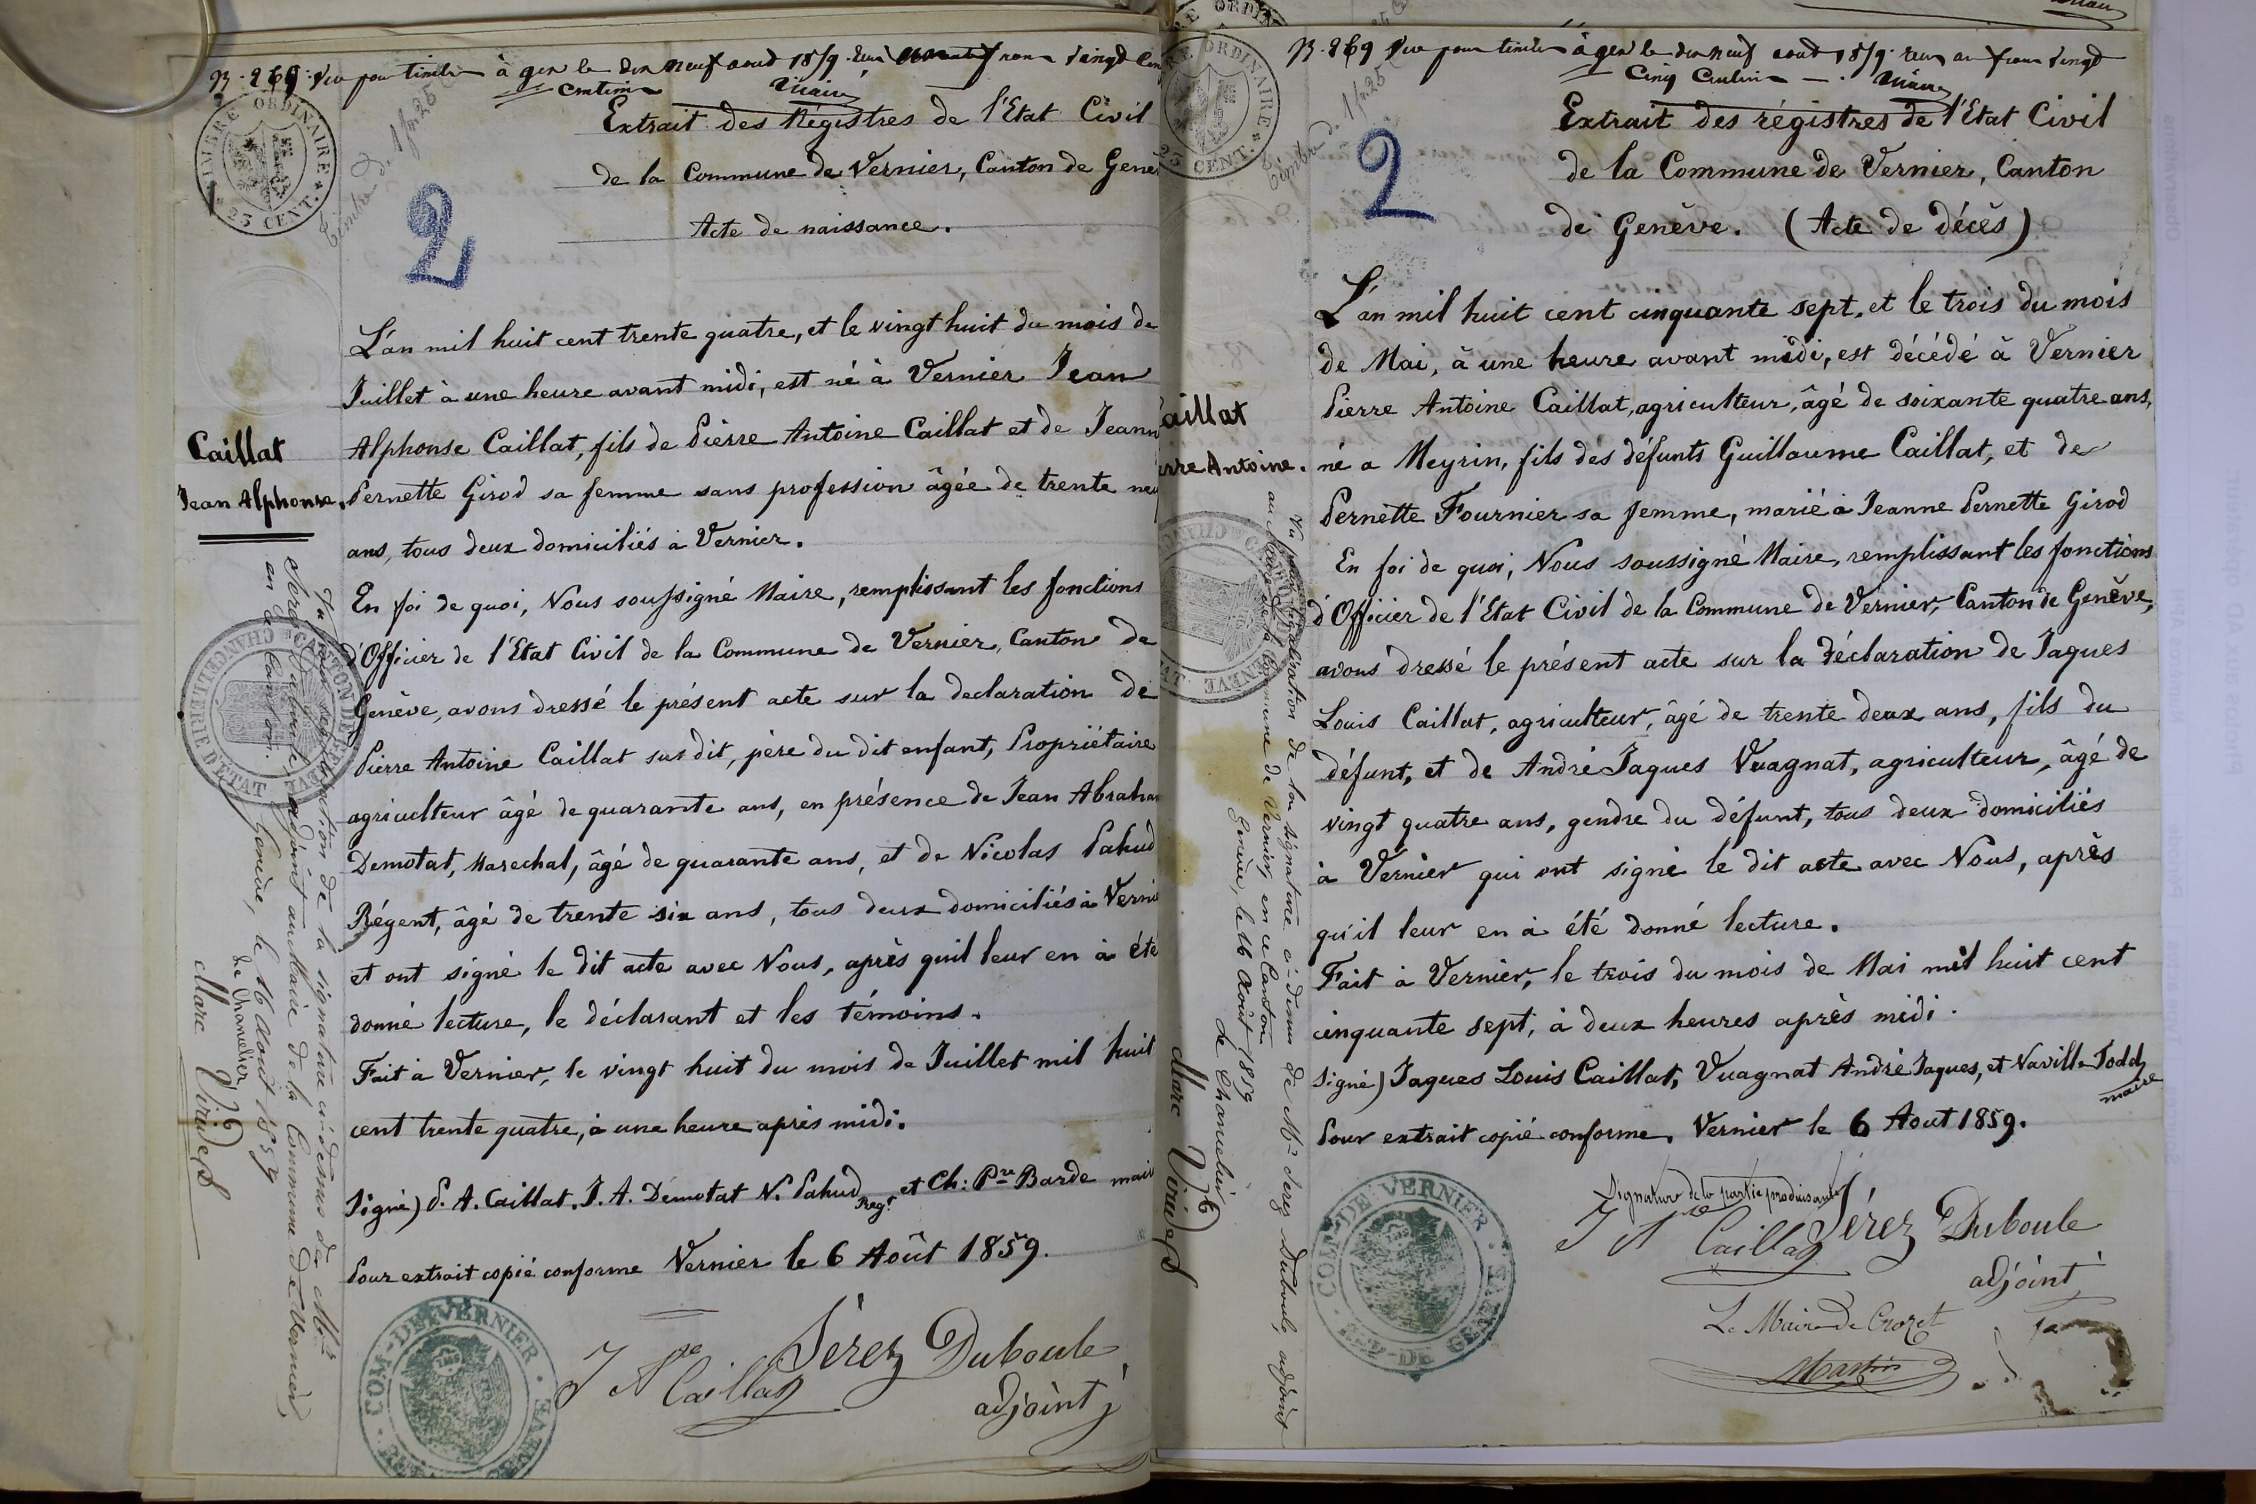 B. 269. Vu pour timbre à gex le dix neuf aout 1859. reçu un franc vingt cin
centimes
TIMBRE ORDINAIRE
25 CENT.
Timbre de 1 fr 25
2
Extrait des Régistres de l'Etat Civil
de la Commune de Vernier, Canton de Genè
Acte de naissance.
Caillat
Jean Alphonse.
L'an mil huit cent trente quatre, et le vingt huit du mois de
Juillet à une heure avant midi, est né à Vernier Jean
Alphonse Caillat, fils de Pierre Antoine Caillat et de Jeann
Pernette Girod sa femme sans profession âgée de trente neu
ans, tous deux domiciliés à Vernier.
En foi de quoi, Nous soussigné Maire, remplissant les fonctions
d'Officier de l'Etat Civil de la Commune de Vernier, Canton de
Genève, avons dressé le présent acte sur la declaration de
Pierre Antoine Caillat sus dit, père du dit enfant, Propriétaire
agriculteur âgé de quarante ans, en présence de Jean Abraham
Demotat, Marechal, âgé de quarante ans, et de Nicolas Pahud
Régent, âgé de trente six ans, tous deux domiciliés à Vernie
et ont signé le dit acte avec Nous, après quil leur en à été
donné lecture, le déclarant et les témoins.
Fait à Vernier, le vingt huit du mois de Juillet mil huit
cent trente quatre, à une heure après midi.
Signé) P. A. Caillat. J. A. Démotat N. Pahud Regt et Ch: Pre Barde mair
Pour extrait copié conforme Vernier le 6 Août 1859.
J Ase Caillat
Sérez Duboule
adjoint
COM. DE VERNIER
Vu pour légalisation de la signature ci-dessus de Mr
Serez Duboule, adjoint au Maire de la Commune de Vernier,
en ce Canton.
Genève, le 16 Août 1859
Le Chancelier
Marc Viridet
CHANCELLERIE D'ETAT CANTON DE GENEVA
B. 269 Vu pour timbre à gex le dix neuf aout 1859. reçu un franc vingt
cinq centimes
ORDINAIRE
25 CENT.
Timbre 1 fr 25
2
Extrait des régistres de l'Etat Civil
de la Commune de Vernier, Canton
de Genève. (Acte de décès)
aillat
erre Antoine.
L'an mil huit cent cinquante sept, et le trois du mois
de Mai, à une heure avant midi, est décédé à Vernier
Pierre Antoine Caillat, agriculteur, âgé de soixante quatre ans,
né a Meyrin, fils des défunts Guillaume Caillat, et de
Pernette Fournier sa femme, marié à Jeanne Pernette Girod
En foi de quoi, Nous soussigné Maire, remplissant les fonctions
d'Officier de l'Etat Civil de la Commune de Vernier, Canton de Genève,
avons dressé le présent acte sur la déclaration de Jaques
Louis Caillat, agriculteur, âgé de trente deux ans, fils du
défunt, et de André Jaques Vuagnat, agriculteur, âgé de
vingt quatre ans, gendre du défunt, tous deux domiciliés
à Vernier qui ont signé le dit acte avec Nous, après
qu'il leur en à été donné lecture.
Fait à Vernier, le trois du mois de Mai mil huit cent
cinquante sept, à deux heures après midi.
Signé) Jaques Louis Caillat, Vuagnat André Jaques, et Naville Todd,
maire
Pour extrait copié conforme. Vernier le 6 Aout 1859.
Signature de la partie produisante
J Ase Caillat
Sérez Duboule
adjoint
Le Maire de Crozet
Martin
COM. DE VERNIER
REP. DE GENEVE
Vu pour légalisation de la signature ci-dessus de Mr Serez Duboule, adjoint
au Maire de la Commune de Vernier, en ce Canton
Genève, le 16 Août 1859
Le Chancelier
Marc Viridet